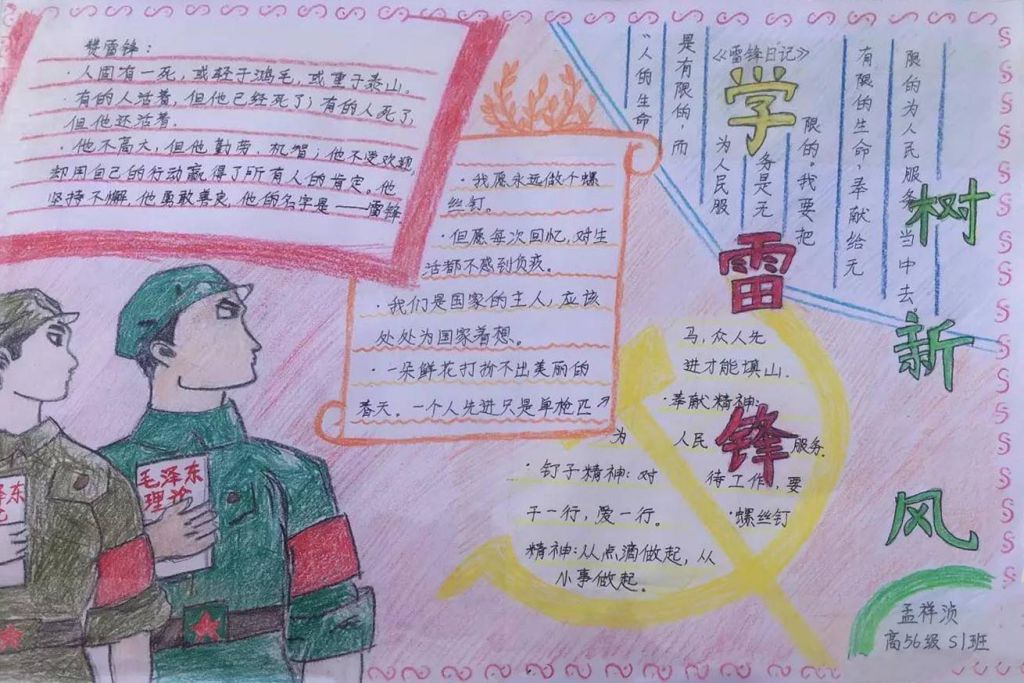 赞雷锋：
·人固有一死，或轻于鸿毛，或重于泰山。
·有的人活着，但他已经死了；有的人死了，
但他还活着。
·他不高大，但他勤劳，机智；他不受欢迎，
却用自己的行动赢得了所有人的肯定。他
坚持不懈，他勇敢善良，他的名字是——雷锋
·我愿永远做个螺
丝钉。
·但愿每次回忆，对生
活都不感到负疚。
·我们是国家的主人，应该
处处为国家着想。
·一朵鲜花打扮不出美丽的
春天。一个人先进只是单枪匹
马，众人先
进才能填山．
·奉献精神：
为人民服务．
·钉子精神：对待工作，要
干一行，爱一行。
·螺丝钉
精神：从点滴做起，从
小事做起。
《雷锋日记》
“人的生命
是有限的，而
为人民服
务是无
限的。我要把
有限的生命，奉献给无
限的为人民服务当中去
学
雷
锋
树
新
风
毛泽东
理论
泽东
孟祥浈
高56级 S1班